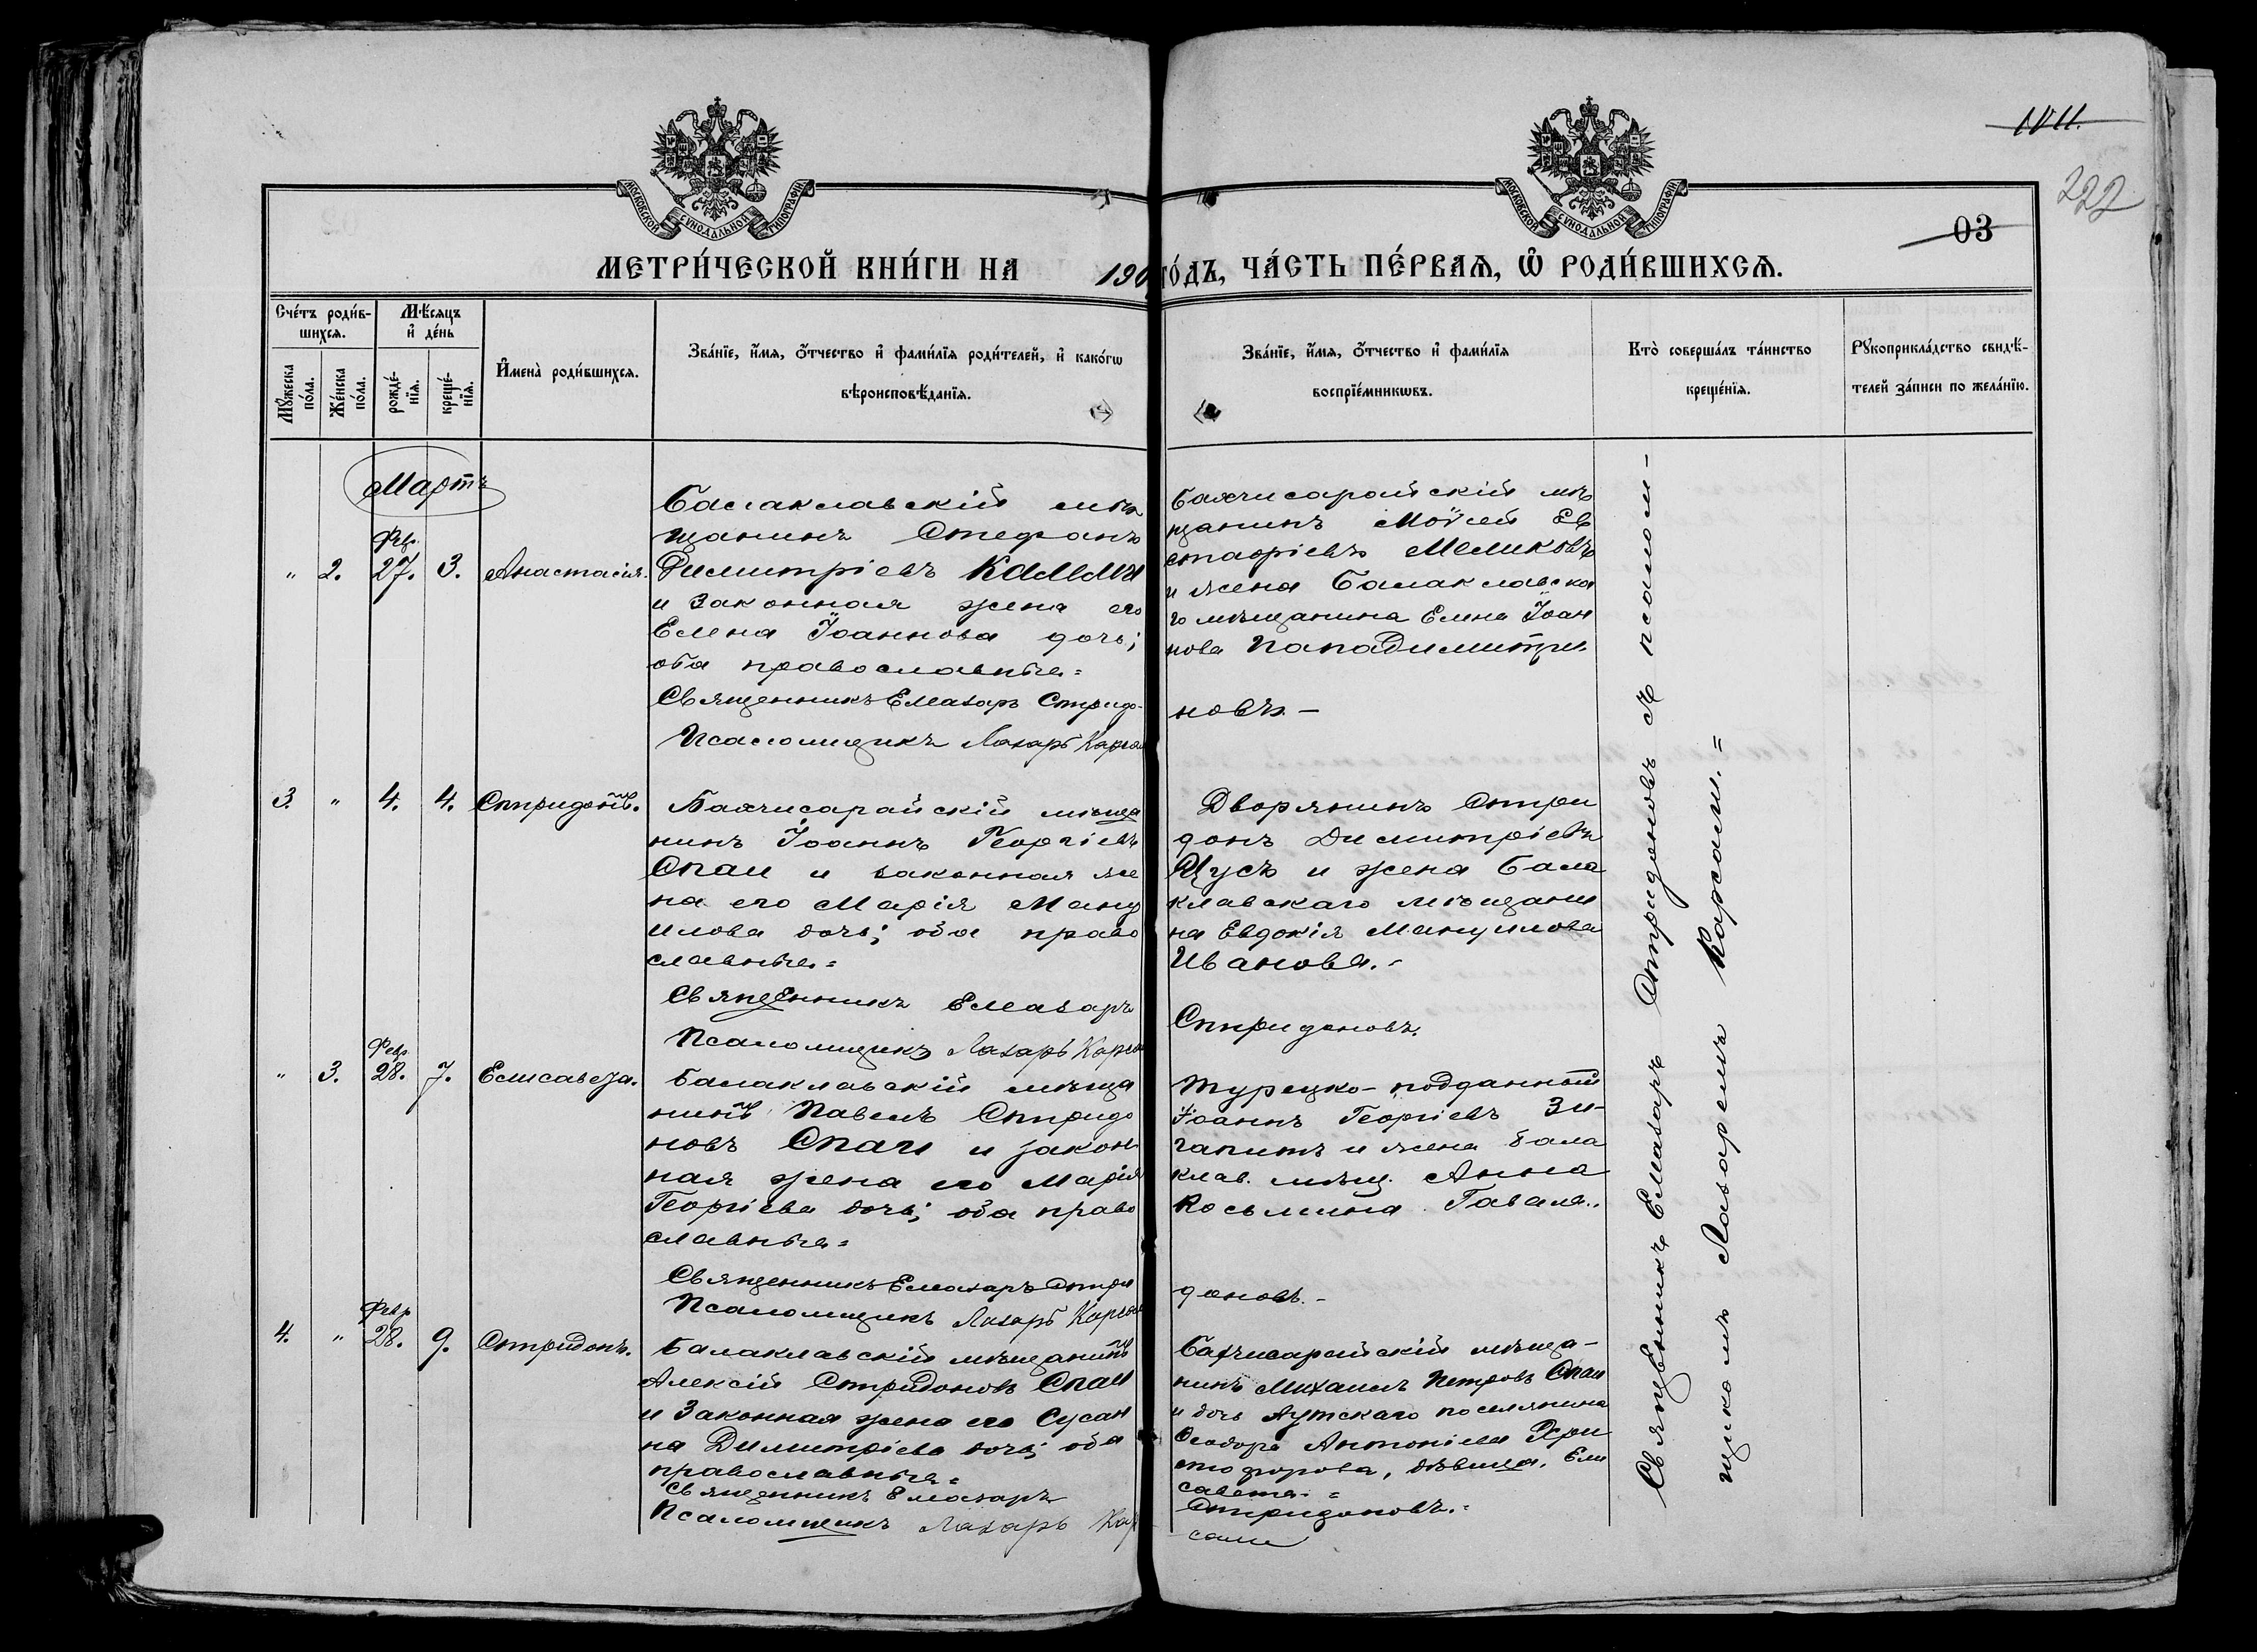 1011.
222
03
МОСКОВСКОЙ СѴНОДАЛЬНОЙ ТИПОГРАФІИ
МОСКОВСКОЙ СѴНОДАЛЬНОЙ ТИПОГРАФІИ
МЕТРИ́ЧЕСКОЙ КНИ́ГИ НА 190
ГО́ДЪ, ЧА́СТЬ ПЕ́РВАѦ, Ѡ҆ РОДИ́ВШИХСѦ.
Сче́тъ роди́в-
шихсѧ.
Мѣ́сѧцъ
и҆ де́нь
Мꙋ́жеска
по́ла.
Же́нска
по́ла.
рожде́-
нїѧ.
креще́-
нїѧ.
И҆мена̀ роди́вшихсѧ.
Зва́нїе, и҆́мѧ, ѻ҆́тчество и҆ фами́лїѧ роди́телей, и҆ како́гѡ
вѣроисповѣ́данїѧ.
Зва́нїе, и҆́мѧ, ѻ҆́тчество и҆ фами́лїѧ
воспрїе́мникѡвъ.
Кто̀ соверша́лъ та́инство
креще́нїѧ.
Рꙋкоприкла́дство свидѣ́-
телей за́писи по жела́нїю.
Мартъ
Фев.
" 2. 27. 3. Анастасія.
Балаклавскій мѣ
щанинъ Стефанъ
Димитріевъ
и законная жена его
Елена Іоаннова дочь;
оба православные=
Священникъ Елазаръ Спиридо-
Псаломщикъ Лазарь Карса
Бахчисарайскій мѣ
щанинъ Моѵсей Ев
стафіевъ Меликовъ
и жена Балаклавска
го мѣщанина Елена Іоан
нова ПападимитрI
новъ.-
3. " 4. 4. Спиридонъ.
Бахчисарайскій мѣща
нинъ Іоаннъ Георгіевъ
Спаи и законная же
на его Марія Ману
илова дочь; оба право
славные=
Священникъ Елазаръ
Псаломщикъ Лазарь Карса
Дворянинъ Спири
донъ Димитріевъ
Цусъ и жена Бала
клавскаго мѣщани
на Евдокія Мануилова
Иванова.-
Спиридоновъ.
Февр
" 3. 28. 7. Елисавета.
Балаклавскій мѣща
нинъ Павелъ Спиридо
новъ Спаи и закон
ная жена его Марія
Георгіева дочь; оба право
славные=
Священникъ Елазаръ Спири
Псаломщикъ Лазарь Карса
Турецко-подданный
Іоаннъ Георгіевъ Зи-
гапитъ и жена бала
клав. мѣщ. Анна
Косьмина Гавала.
доновъ.-
Февр
4. " 28. 9. Спиридонъ.
Балаклавскій мѣщанинъ
Алексій Спиридоновъ Спаи
и законная жена его Сусан
на Димитріева дочь; оба
православные=
Священникъ Елазаръ
Псаломщикъ Лазарь Кар
Бахчисарайскій мѣща-
нинъ Михаилъ Петровъ Спаи
и дочь Аутскаго поселянина
Ѳеодора Антоніева Хри
стофорова, дѣвица, Ели
савета.=
Спиридоновъ.=
сали
Священникъ Елазаръ Спиридоновъ съ псалом-
щикомъ Лазаремъ Карсали.=